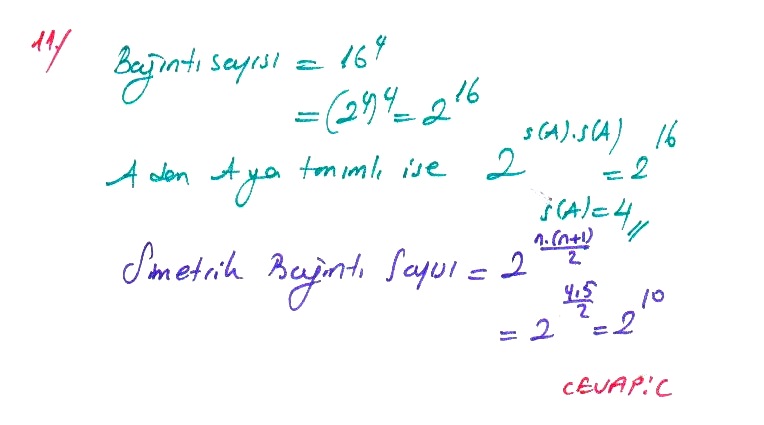 11/ Bağıntı sayısı = 16⁴
= (2⁴)⁴ = 2¹⁶
A dan A ya tanımlı ise 2^{s(A).s(A)} = 2¹⁶
s(A) = 4
Simetrik Bağıntı Sayısı = 2^{\frac{n.(n+1)}{2}}
= 2^{\frac{4.5}{2}} = 2¹⁰
CEVAP: C